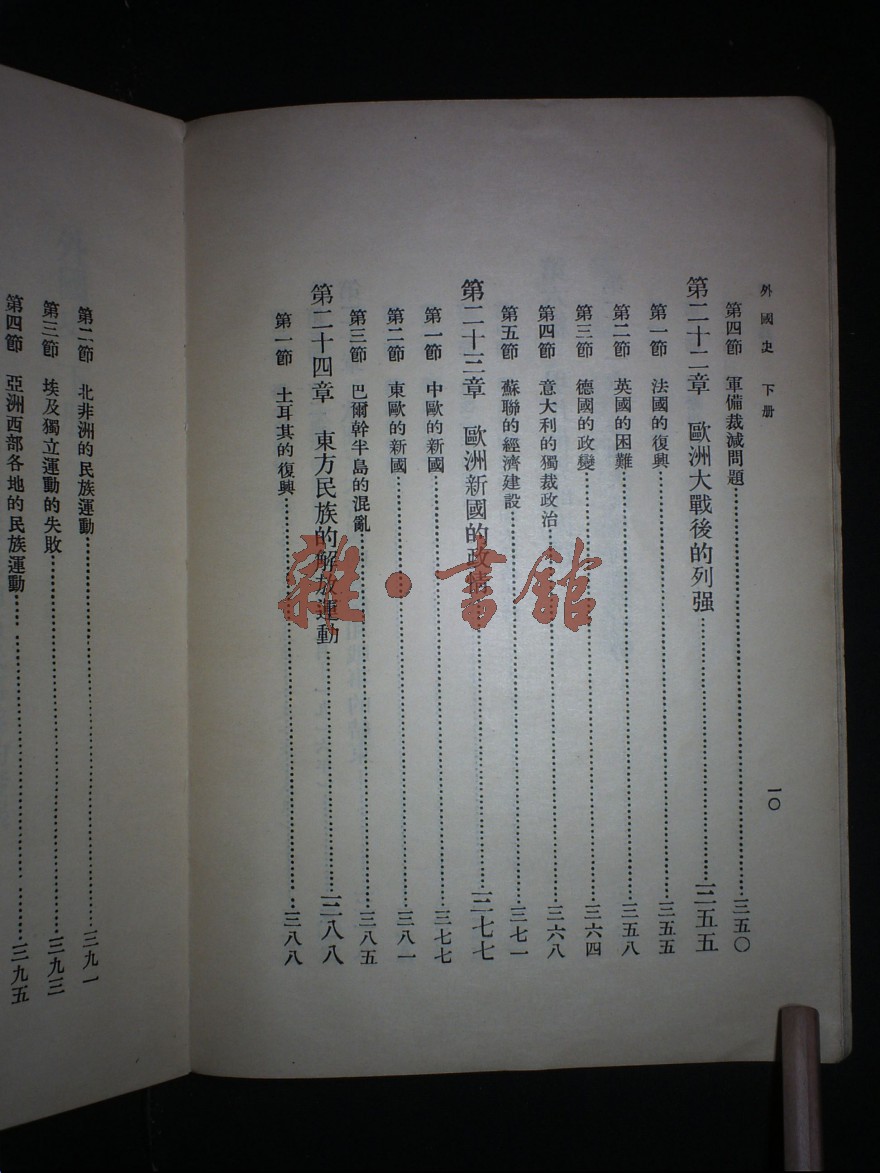 外國史 下册
一〇
第四節 軍備裁減問題……三五〇
第二十二章 歐洲大戰後的列强……三五五
第一節 法國的復興……三五五
第二節 英國的困難……三五八
第三節 德國的政變……三六四
第四節 意大利的獨裁政治……三六八
第五節 蘇聯的經濟建設……三七一
第二十三章 歐洲新國的政情……三七七
第一節 中歐的新國……三七七
第二節 東歐的新國……三八一
第三節 巴爾幹半島的混亂……三八五
第二十四章 東方民族的解放運動……三八八
第一節 土耳其的復興……三八八
第二節 北非洲的民族運動……三九一
第三節 埃及獨立運動的失敗……三九三
第四節 亞洲西部各地的民族運動……三九五
雜·書館